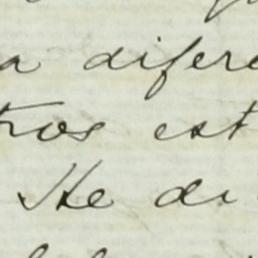 a difere
tros est
He di